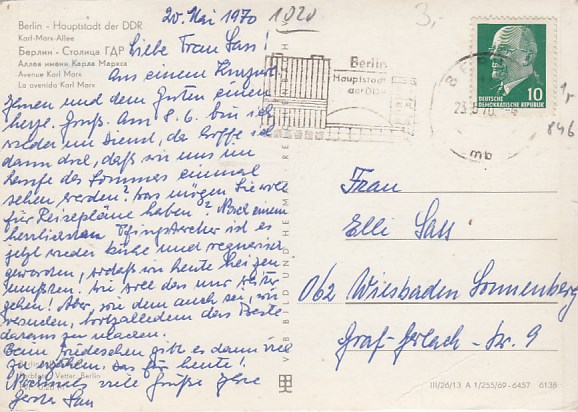 Berlin - Hauptstadt der DDR
Karl-Marx-Allee
Берлин - Столица ГДР
Аллея имени Карла Маркса
Avenue Karl Marx
La avenida Karl Marx
20. Mai 1970
1020
Liebe Frau Sass!
Aus einem Kurzurl
Ihnen und dem Guten einen
herzl. Gruß. Am 8. 6. bin ich
wieder im Dienst, da hoffe ich
dann drei, daß wir uns im
Laufe des Sommers einmal
sehen werden? Was mögen Sie wohl
für Reisepläne haben? Nach einem
herrlichsten Pfingstwetter ist es
jetzt wieder kühl und regnerisch
geworden, sodaß wir heute heizen
mußten. Wie soll das nur weiter
gehen! Aber, wie dem auch sei, wir
versuchen, trotzalledem das Beste
daraus zu machen.
Beim Wiedersehen gibt es dann viel
zu erzählen, das für heute!
Nochmals viele Grüße Ihre
VEB BILD UND HEIMAT REICHENBACH
Vetter, Berlin
Berlin
Hauptstadt
der DDR
DEUTSCHE
DEMOKRATISCHE REPUBLIK
10
mb
3,-
846
Frau
Elli Sass
062 Wiesbaden Sonnenberg
Graf-Gerlach-Str. 9
III/26/13 A 1/255/69-6457 6138